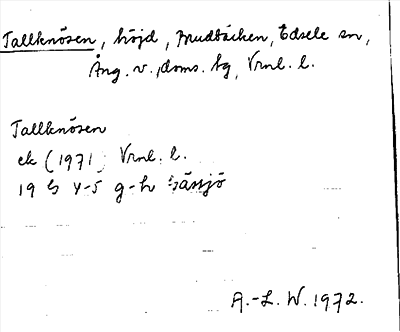 Tallknösen, höjd, Prudbäcken, Edsele sn,
Ång. v., doms. tg, Vrnl. l.
Tallknösen
ek (1971) Vrnl. l.
19 G 4-5 g-h Gåssjö
A.-L. W. 1972.